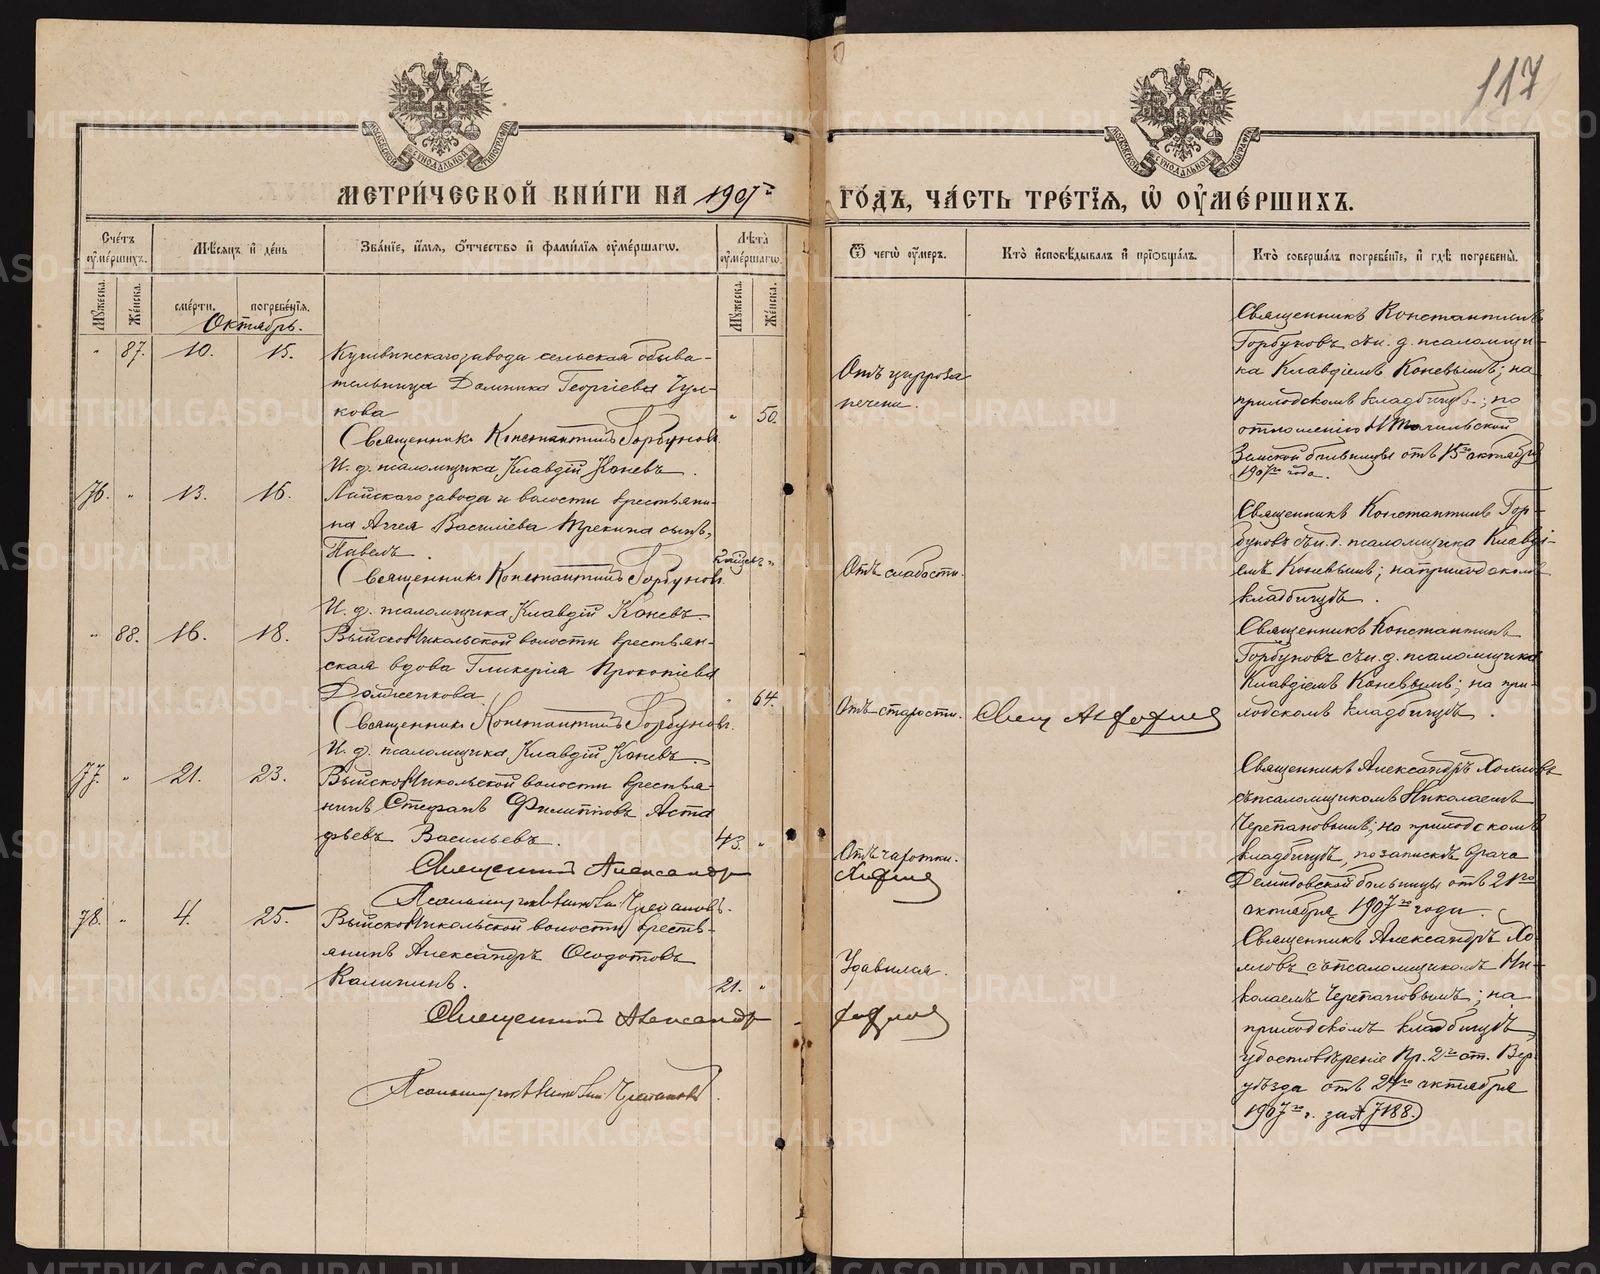 117
МОСКОВСКОЙ СѴНОДАЛЬНОЙ ТИПОГРАФІИ
МОСКОВСКОЙ СѴНОДАЛЬНОЙ ТИПОГРАФІИ
МЕТРИ́ЧЕСКОЙ КНИ́ГИ НА 1907го
ГО́ДЪ, ЧА́СТЬ ТРЕ́ТЇѦ, Ѡ҆ ОУ҆МЕ́РШИХЪ.
Сче́тъ оу҆ме́ршихъ.
Мѣ́сѧцъ и҆ де́нь
Зва́нїе, и҆́мѧ, ѻ҆́тчество и҆ фами́лїѧ оу҆ме́ршагѡ.
Лѣ́та оу҆ме́ршагѡ.
Ѿ чегѡ̀ оу҆́меръ.
Кто̀ и҆сповѣ́дывалъ и҆ прїѡбща́лъ.
Кто̀ соверша́лъ погребе́нїе, и҆ гдѣ̀ погребены̀.
Мꙋ́жеска. Же́нска.
сме́рти. погребе́нїѧ.
Мꙋ́жеска. Же́нска.
Октябрь.
" 87. 10. 15.
Кушвинскаго завода сельская обыва-
тельница Домника Георгіева Чул-
кова
" 50.
Священникъ Константинъ Горбуновъ
И. д. псаломщика Клавдій Коневъ.
Отъ цирроза
печени.
Священникъ Константинъ
Горбуновъ съ и. д. псаломщи-
ка Клавдіемъ Коневымъ; на
приходскомъ кладбищѣ; по
отношенію Н Тагильской
Земской больницы отъ 15го октября
1907го года.
76. " 13. 16.
Лайскаго завода и волости крестьяни-
на Аггея Василіева сынъ,
Павелъ.
Священникъ Константинъ Горбуновъ
И. д. псаломщика Клавдій Коневъ.
Отъ слабости.
Священникъ Константинъ Гор-
буновъ съ и. д. псаломщика Клавді-
емъ Коневымъ; на приходскомъ
кладбищѣ.
" 88. 16. 18.
Выйско Никольской волости крестьян-
ская вдова Гликерія Прокопіева
Долженкова
" 64.
Священникъ Константинъ Горбуновъ.
И. д. псаломщика Клавдій Коневъ.
Отъ старости.
Свящ
Священникъ Константинъ
Горбуновъ съ и. д. псаломщика
Клавдіемъ Коневымъ; на при-
ходскомъ кладбищѣ.
77. " 21. 23.
Выйско Никольской волости крестья-
нинъ Стефанъ Филипповъ Аста
фьевъ Васильевъ.
43. "
Священникъ Александръ
Псаломщикъ Николай Черепановъ.
Отъ чахотки.
Священникъ Александръ Хохловъ
съ псаломщикомъ Николаемъ
Черепановымъ; на приходскомъ
кладбищѣ, по запискѣ врача
Демидовской больницы отъ 21го
октября 1907го года.
78. " 4. 25.
Выйско Никольской волости кресть-
янинъ Александръ Ѳеодотовъ
Калининъ.
21. "
Священникъ Александръ
Псаломщикъ Николай Черепановъ.
Удавился.
Священникъ Александръ Хо-
хловъ съ псаломщикомъ Ни-
колаемъ Черепановымъ; на
приходскомъ кладбищѣ,
удостовѣреніе Пр. 2го ст. Вер.
уѣзда отъ 24го октября
1907го г. за № 7188.
METRIKI.GASO-URAL.RU